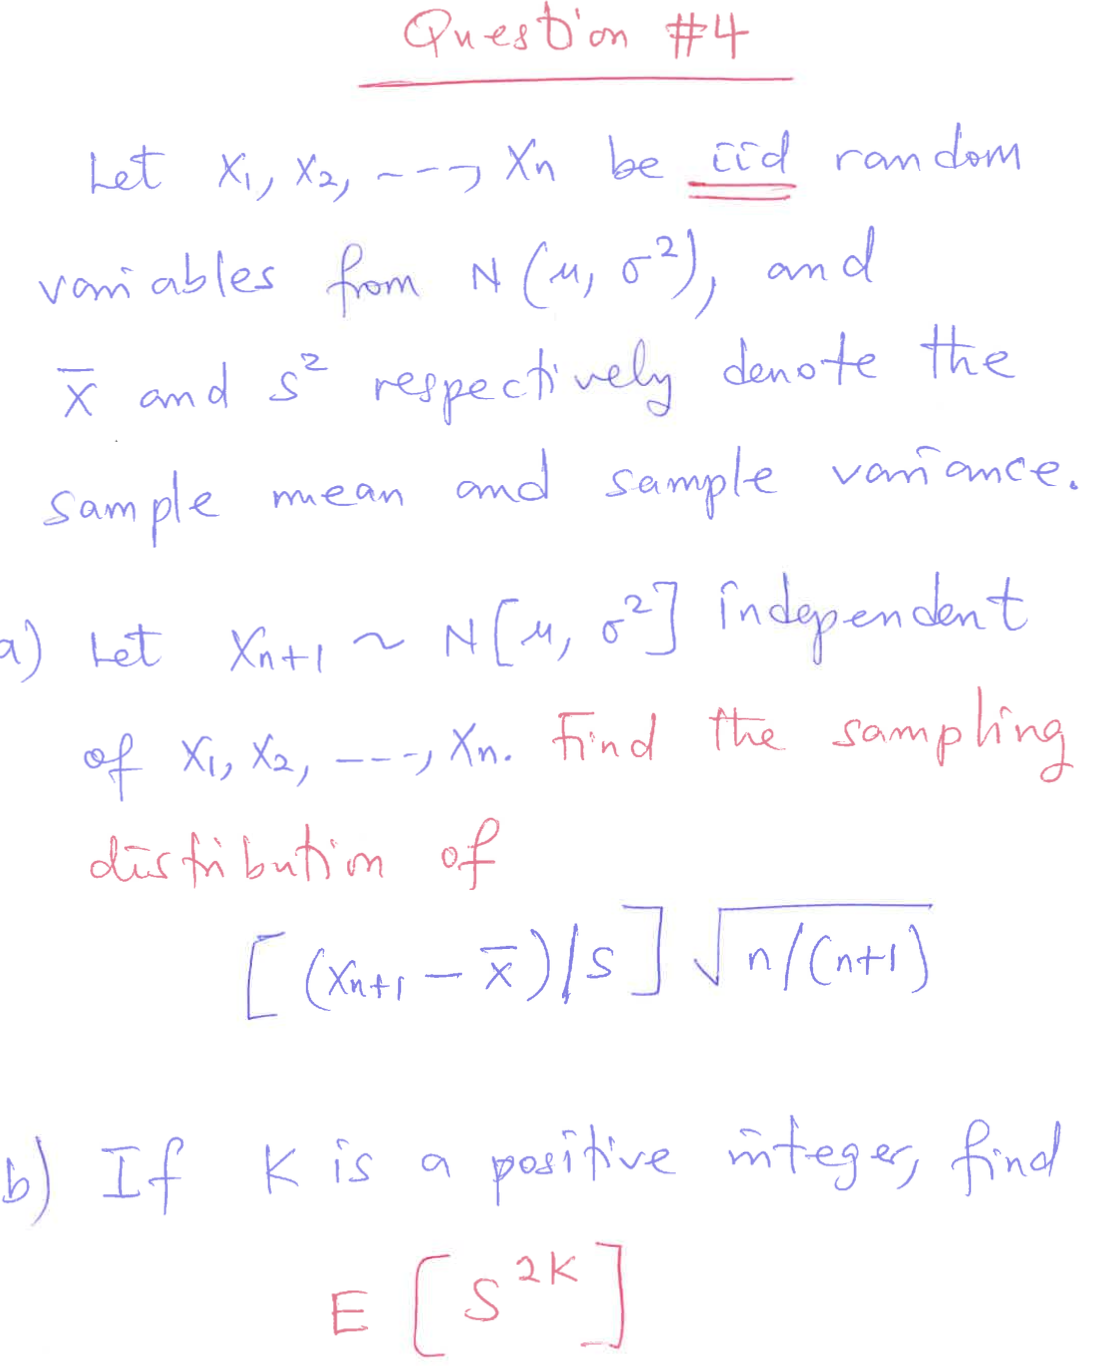 Question #4
Let X₁, X₂, ---, Xn be iid random
variables from N(μ, σ²), and
x̄ and S² respectively denote the
sample mean and sample variance.
a) Let Xn+1 ~ N[μ, σ²] independent
of X₁, X₂, ---, Xn. Find the sampling
distribution of
[(Xn+1 - x̄)/S] √n/(n+1)
b) If K is a positive integer, find
E[S^2K]